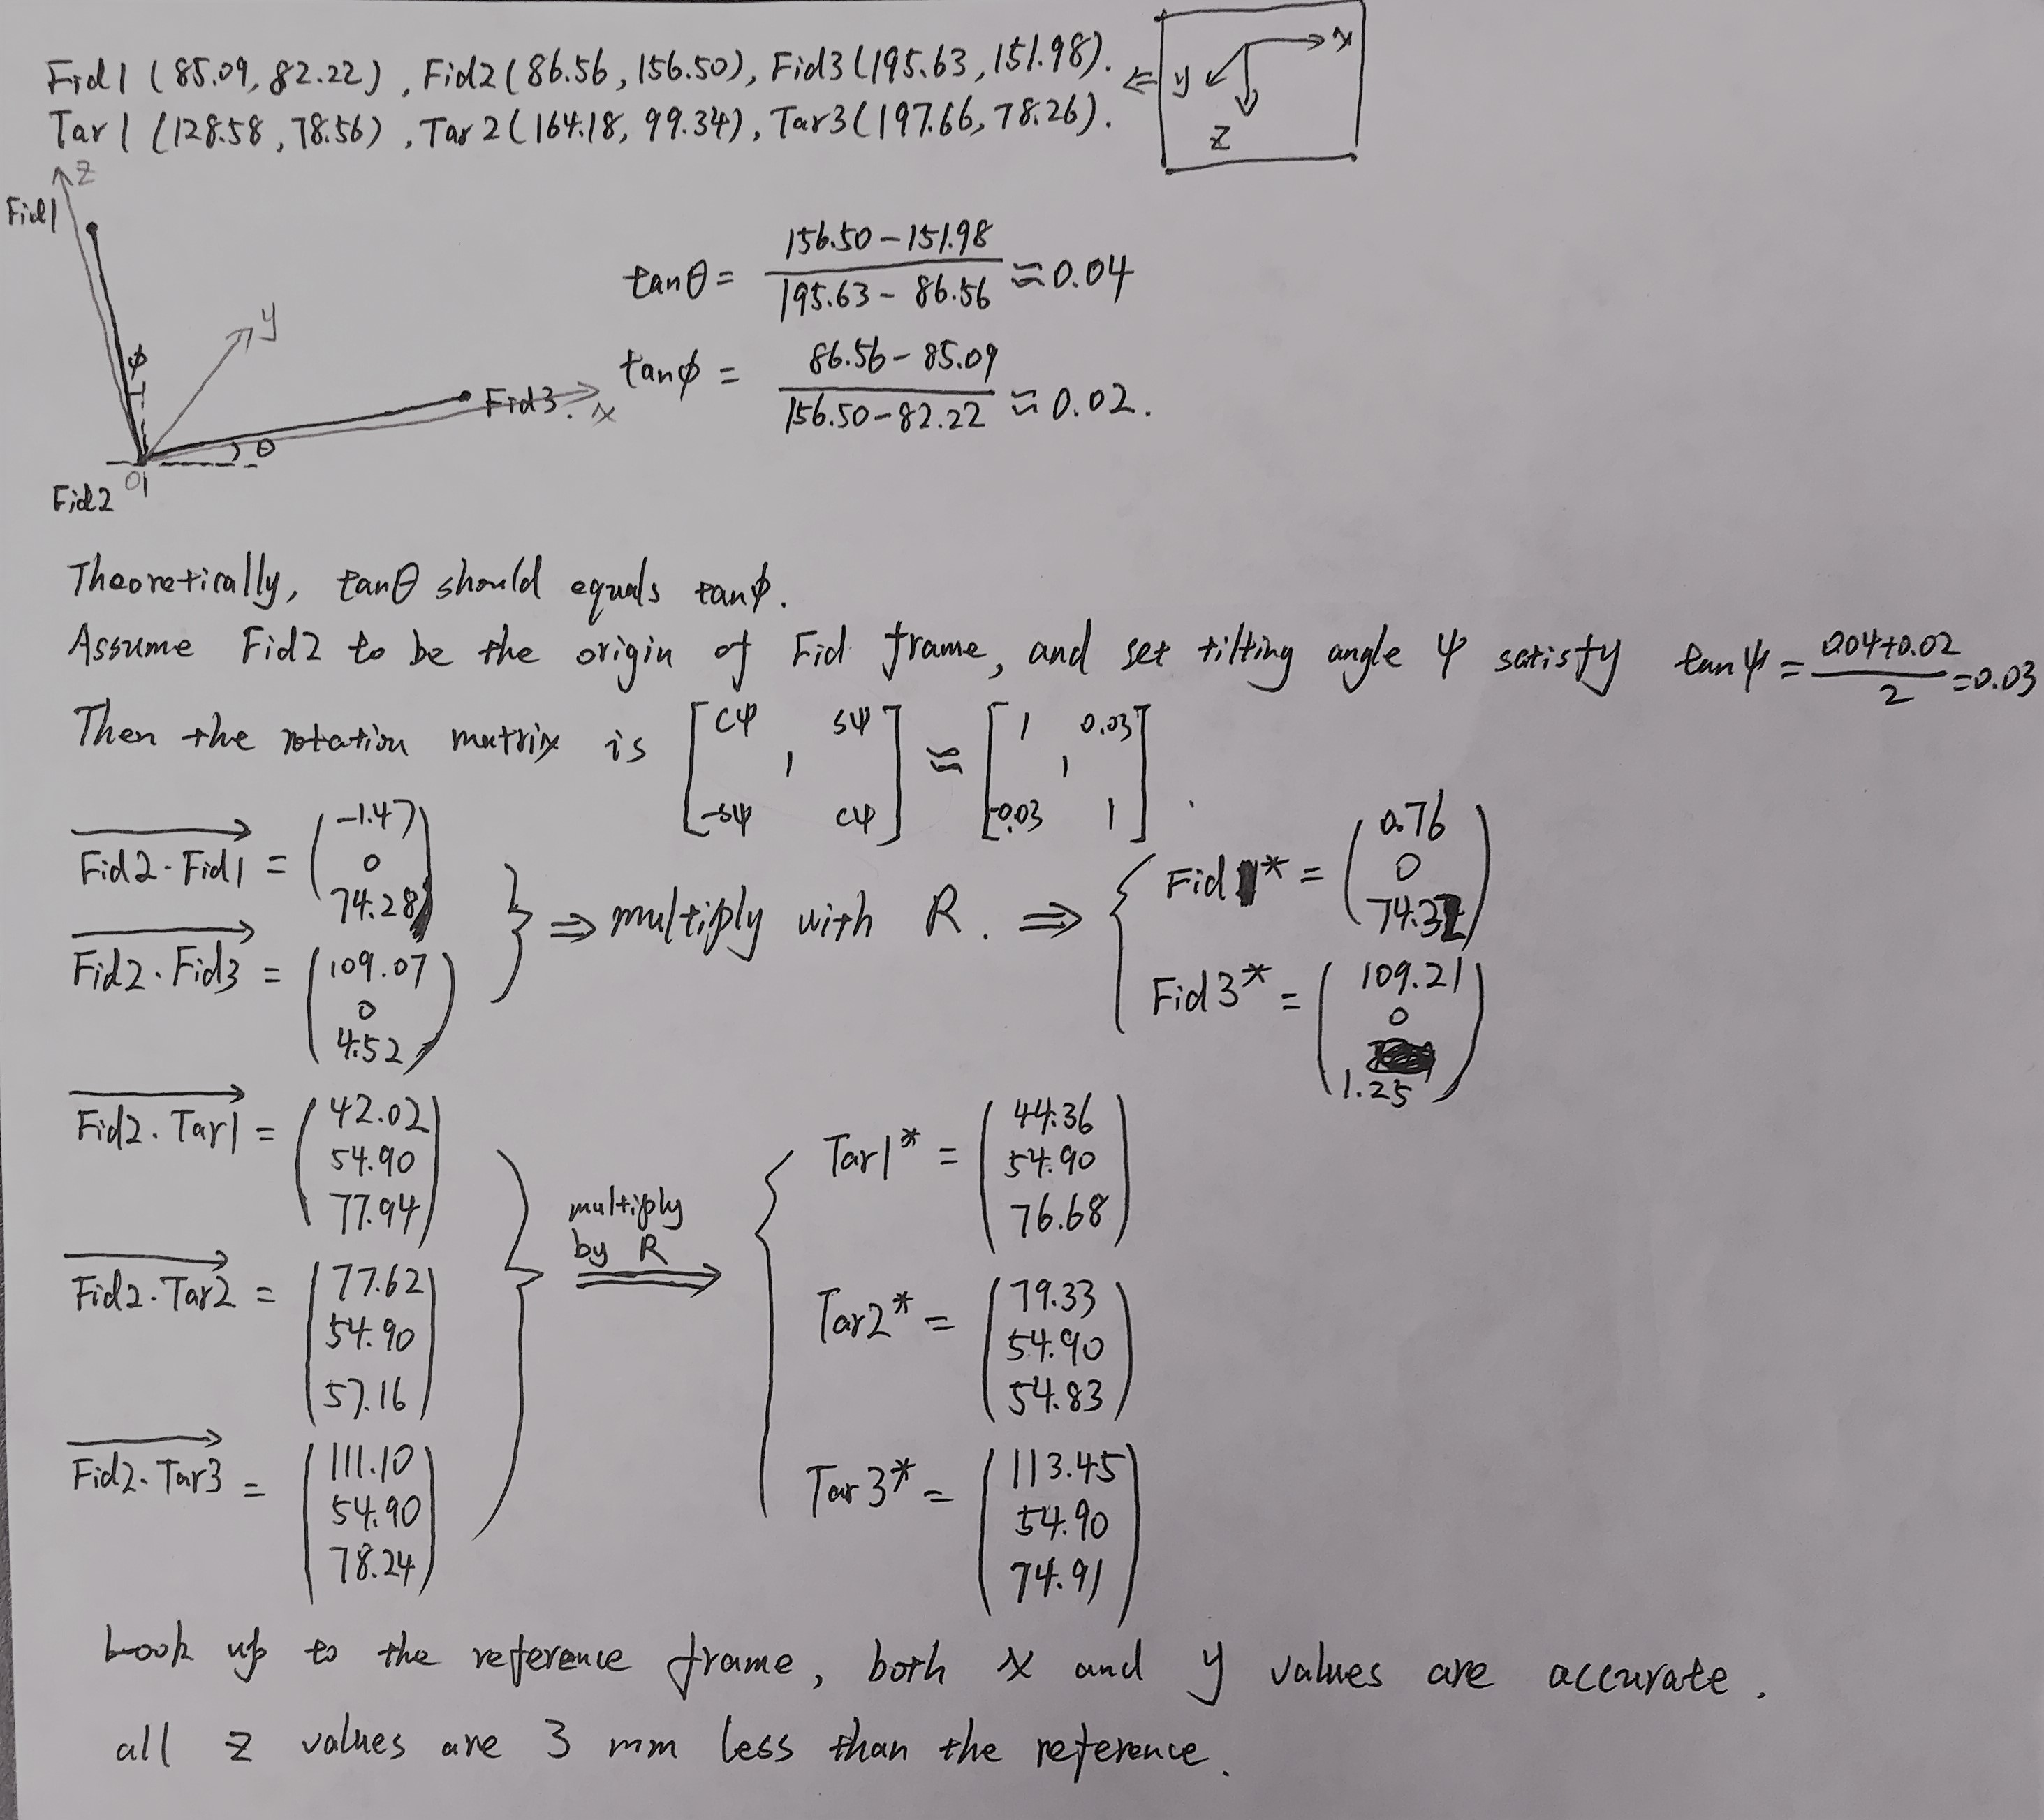 Fid1 (85.09, 82.22), Fid2 (86.56, 156.50), Fid3 (195.63, 151.98). ⇐
Tar1 (128.58, 78.56), Tar2 (164.18, 99.34), Tar3 (197.66, 78.26).
x
y
z
z
Fid1
y
ϕ
Fid3. x
θ
O1
Fid2
tanθ = (156.50 - 151.98) / (195.63 - 86.56) ≈ 0.04
tanϕ = (86.56 - 85.09) / (156.50 - 82.22) ≈ 0.02.
Theoretically, tanθ should equals tanϕ.
Assume Fid2 to be the origin of Fid frame, and set tilting angle ψ satisfy tanψ = (0.04+0.02) / 2 = 0.03
Then the rotation matrix is [cψ , sψ ; 1 ; -sψ cψ] ≈ [1 , 0.03 ; 1 ; -0.03 1] .
Fid2·Fid1 = (-1.47 0 74.28)
Fid2·Fid3 = (109.07 0 4.52)
⇒ multiply with R. ⇒
Fid1* = (0.76 0 74.32)
Fid3* = (109.21 0 1.25)
Fid2·Tar1 = (42.02 54.90 77.94)
Fid2·Tar2 = (77.62 54.90 57.16)
Fid2·Tar3 = (111.10 54.90 78.24)
multiply
by R
Tar1* = (44.36 54.90 76.68)
Tar2* = (79.33 54.90 54.83)
Tar3* = (113.45 54.90 74.91)
Look up to the reference frame, both x and y values are accurate.
all z values are 3 mm less than the reference.